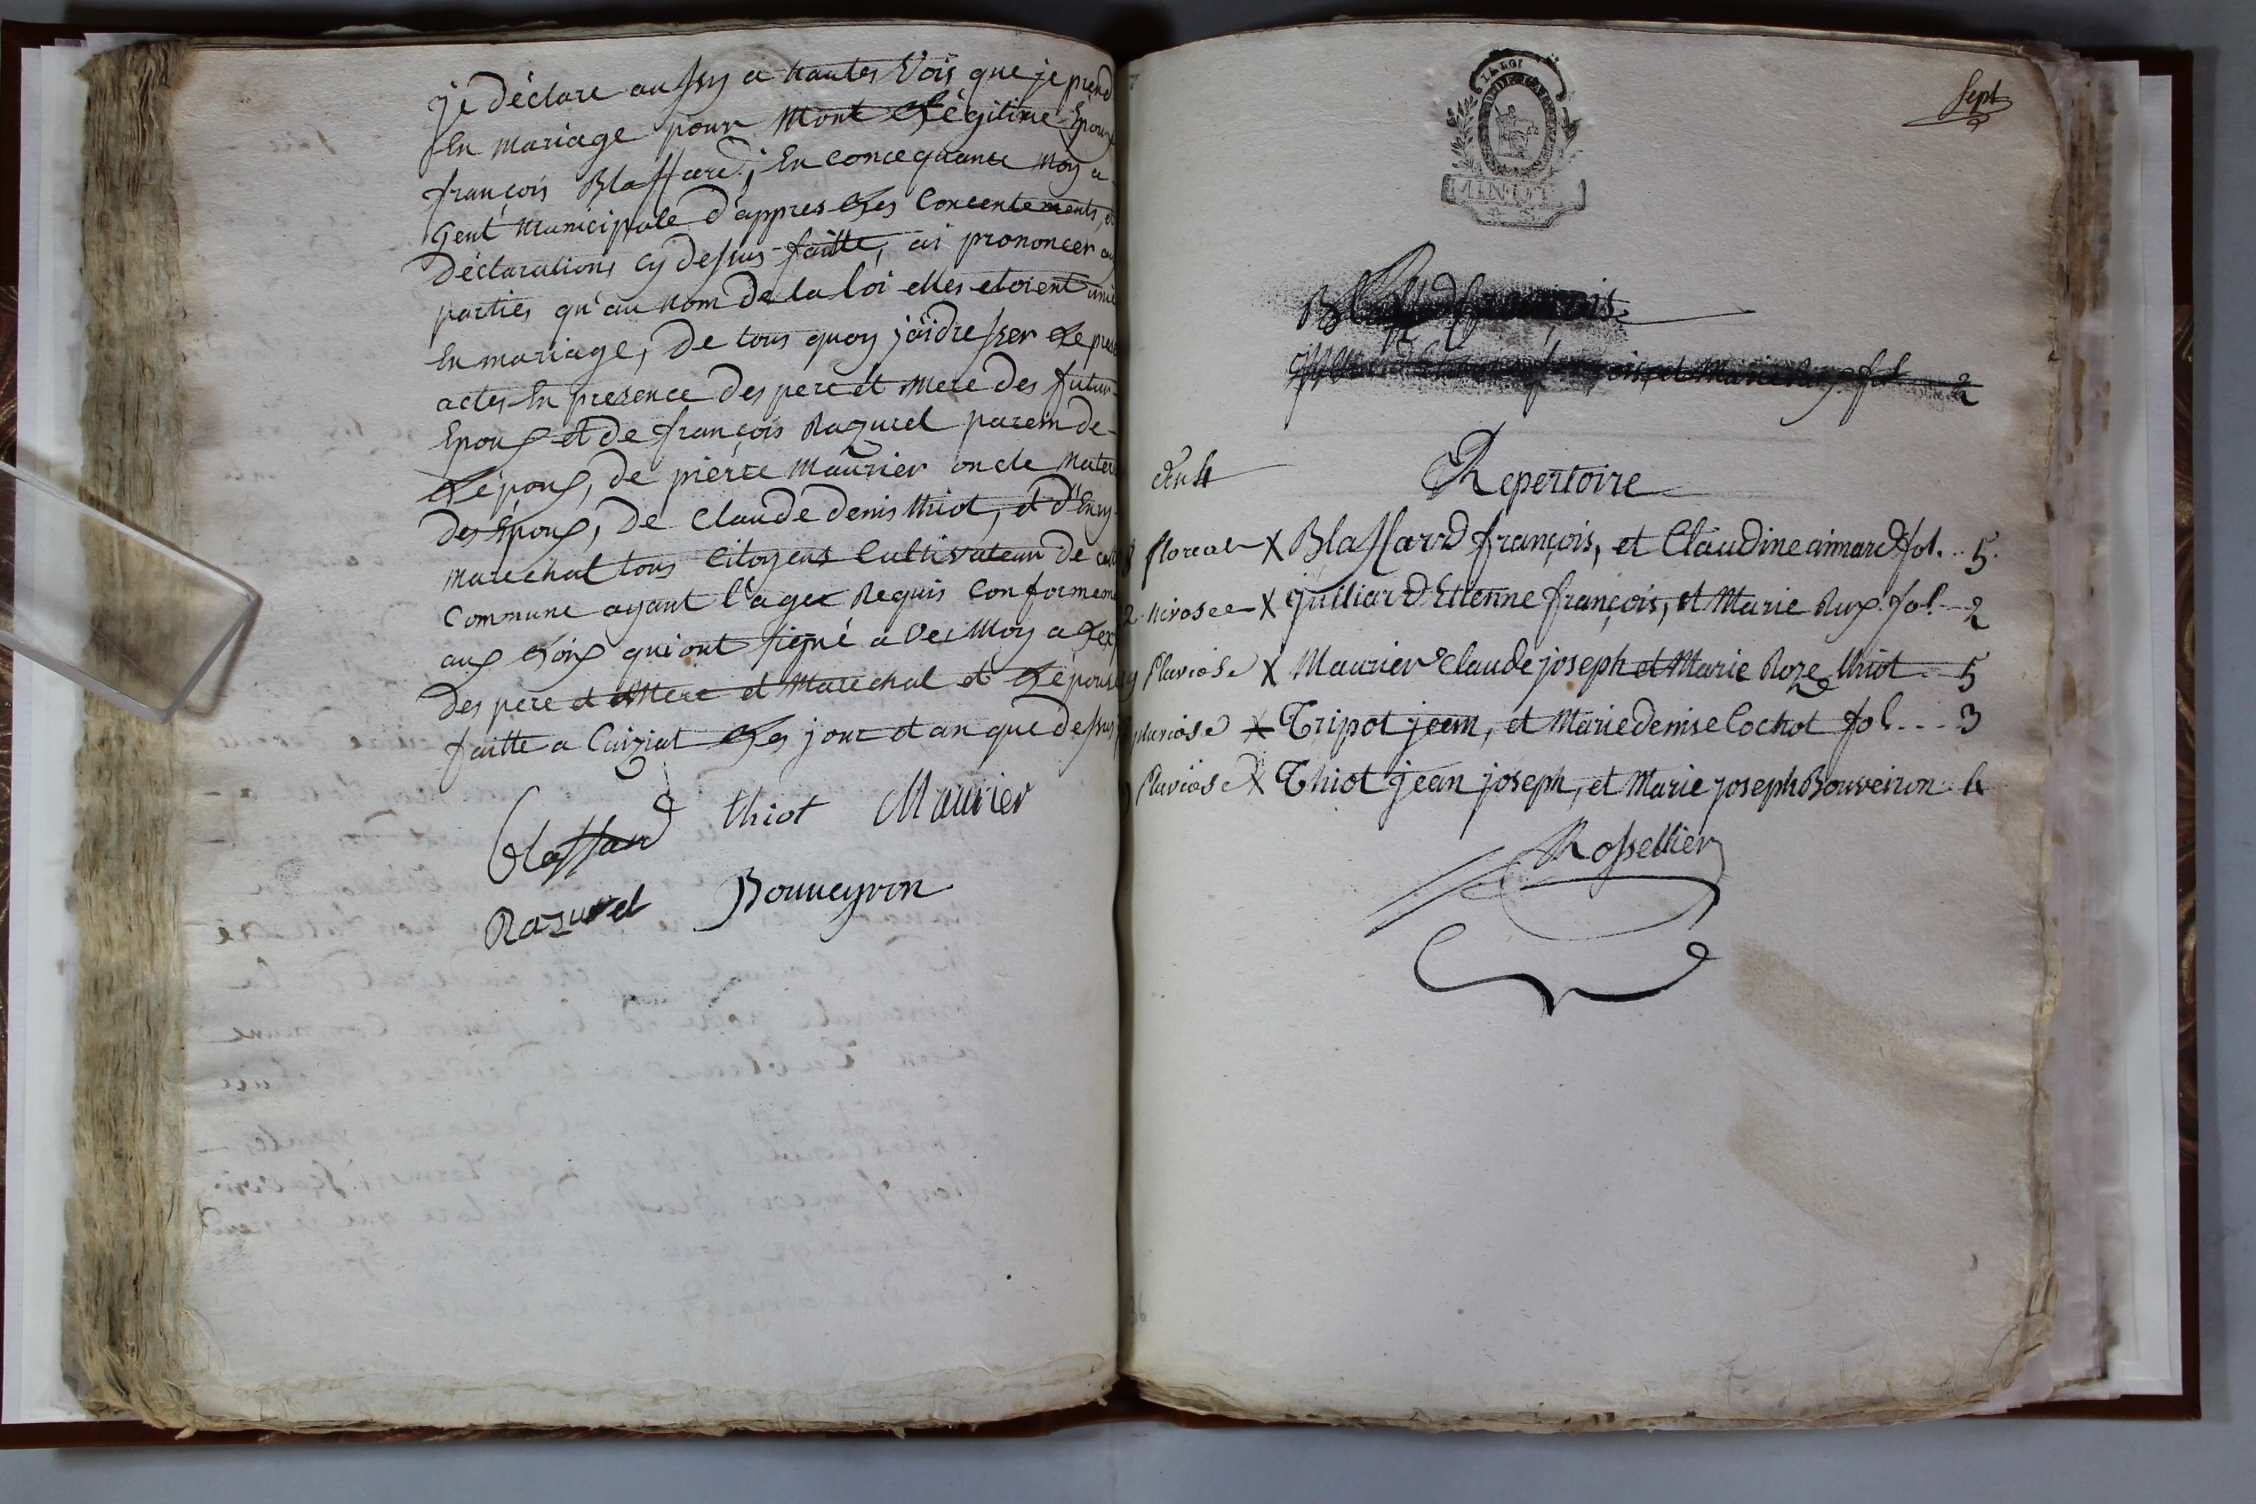 je déclare aussy a hautes Vois que je prend
En mariage pour Mont Légitime Epoux
françois Blassard; En concequance Moy a
gent Municipale d'appres Les Concentements, et
Déclarations cy dessus faitte, ai prononcer au
parties qu'au nom de la loi elles etoient unie
En mariage, De tous quoy j'ai dresser Le pres
actes En presence des pere et mere des futur
Epoux et de françois Razurel parein de
L'époux, de pierre Maurier oncle Mater
des Epoux, De Claude denis thiot, et
Marechal tous Citoyens Cultivateur de cette
Commune ayant l'agee Requis Conformeme
aux Loix qui ont signé avec Moy a L'ex
Des pere et Mere et Marechal et L'epouse
faitte a Cuiziat Les jour et an que dessus
Blassard thiot Maurier
Razurel Bouveyron
LA LOI
Sept
Blassard françois
françois, et Marie Rux fol 2
Repertoire
floreal X Blassard françois, et Claudine aimard fol. 5.
2 nivosee X Julliard Etienne françois, et Marie Rux. fol. 2
9 Pluviose X Maurier Claude joseph et Marie Roze thiot 5
pluviose X Tripot jean, et Marie denise Cochot fol. 3
Pluviose X Thiot jean joseph, et Marie joseph Bouveiron 4
Rossellier